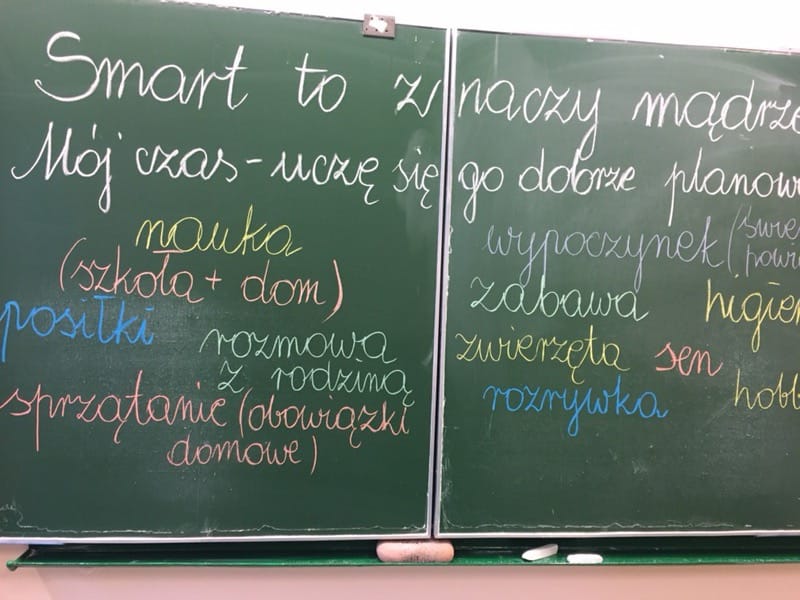 Smart to znaczy mądrze
Mój czas - uczę się go dobrze planow
nauka
(szkoła + dom)
posiłki
rozmowa
z rodziną
sprzątanie (obowiązki
domowe)
wypoczynek (świe
powi
zabawa
higien
zwierzęta
sen
rozrywka
hobb